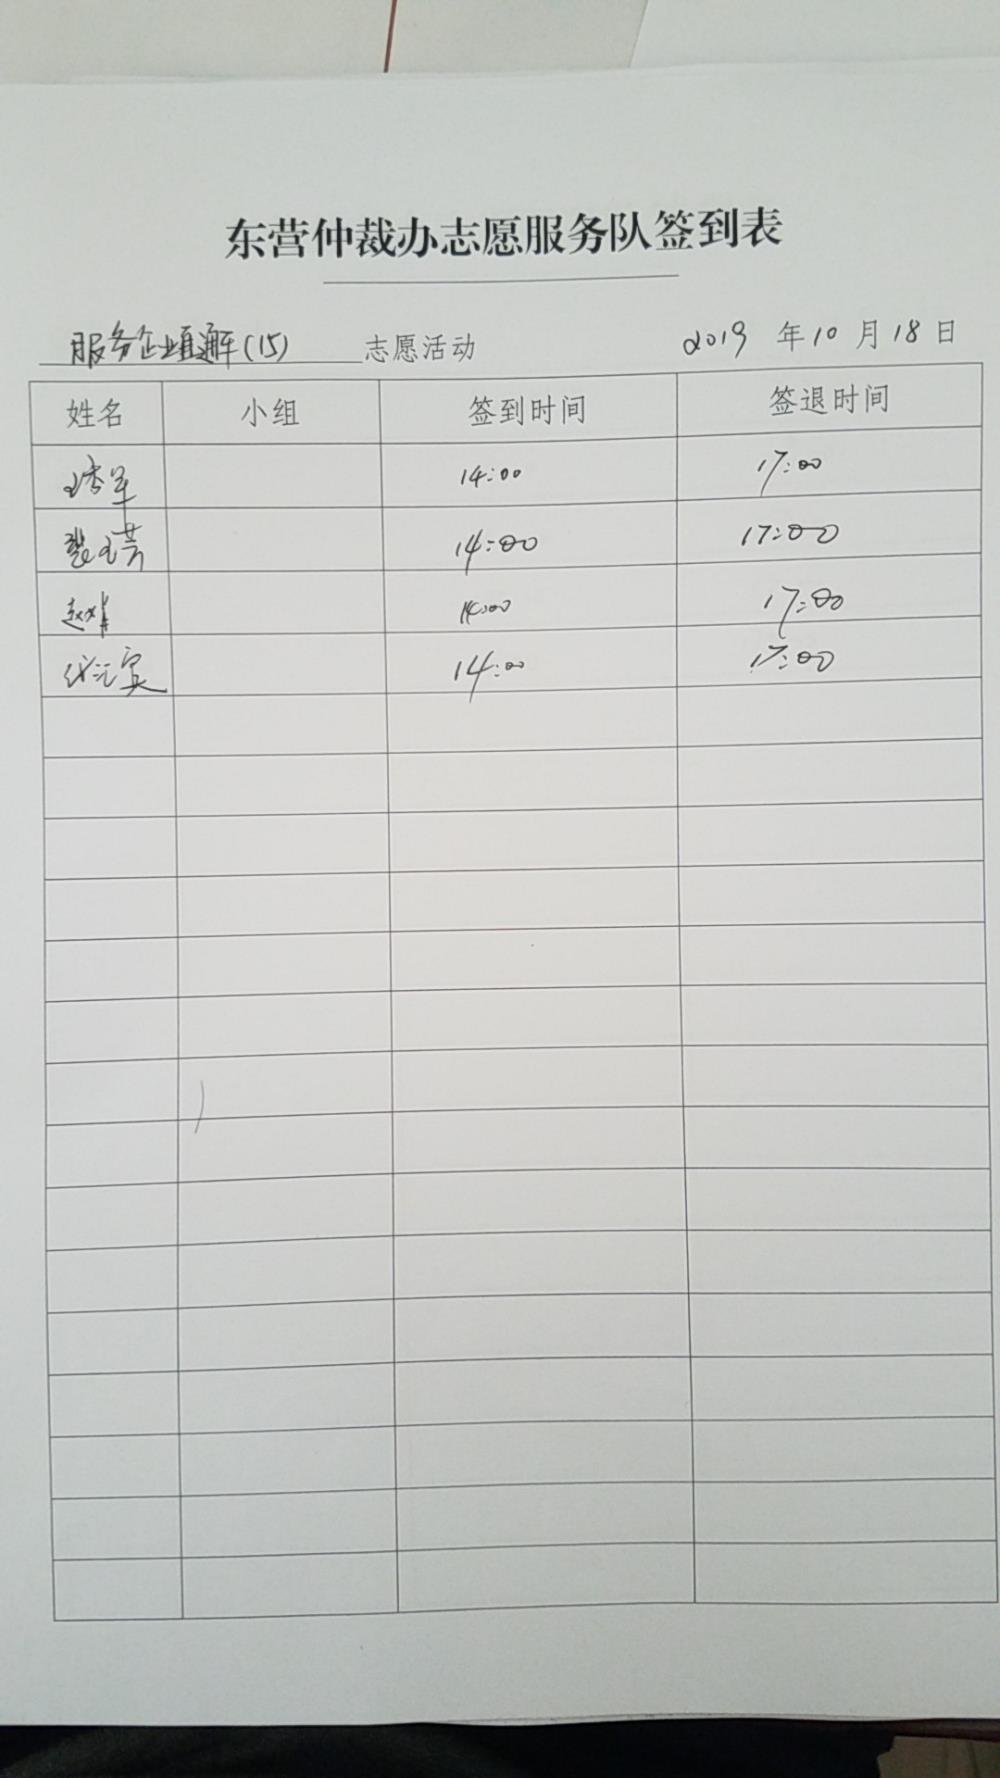 东营仲裁办志愿服务队签到表
服务企业直通车(15) 志愿活动 2019 年 10 月 18 日
姓名 小组 签到时间 签退时间
王秀军 14:00 17:00
裴玉芳 14:00 17:00
14:00 17:00
14:00 17:00